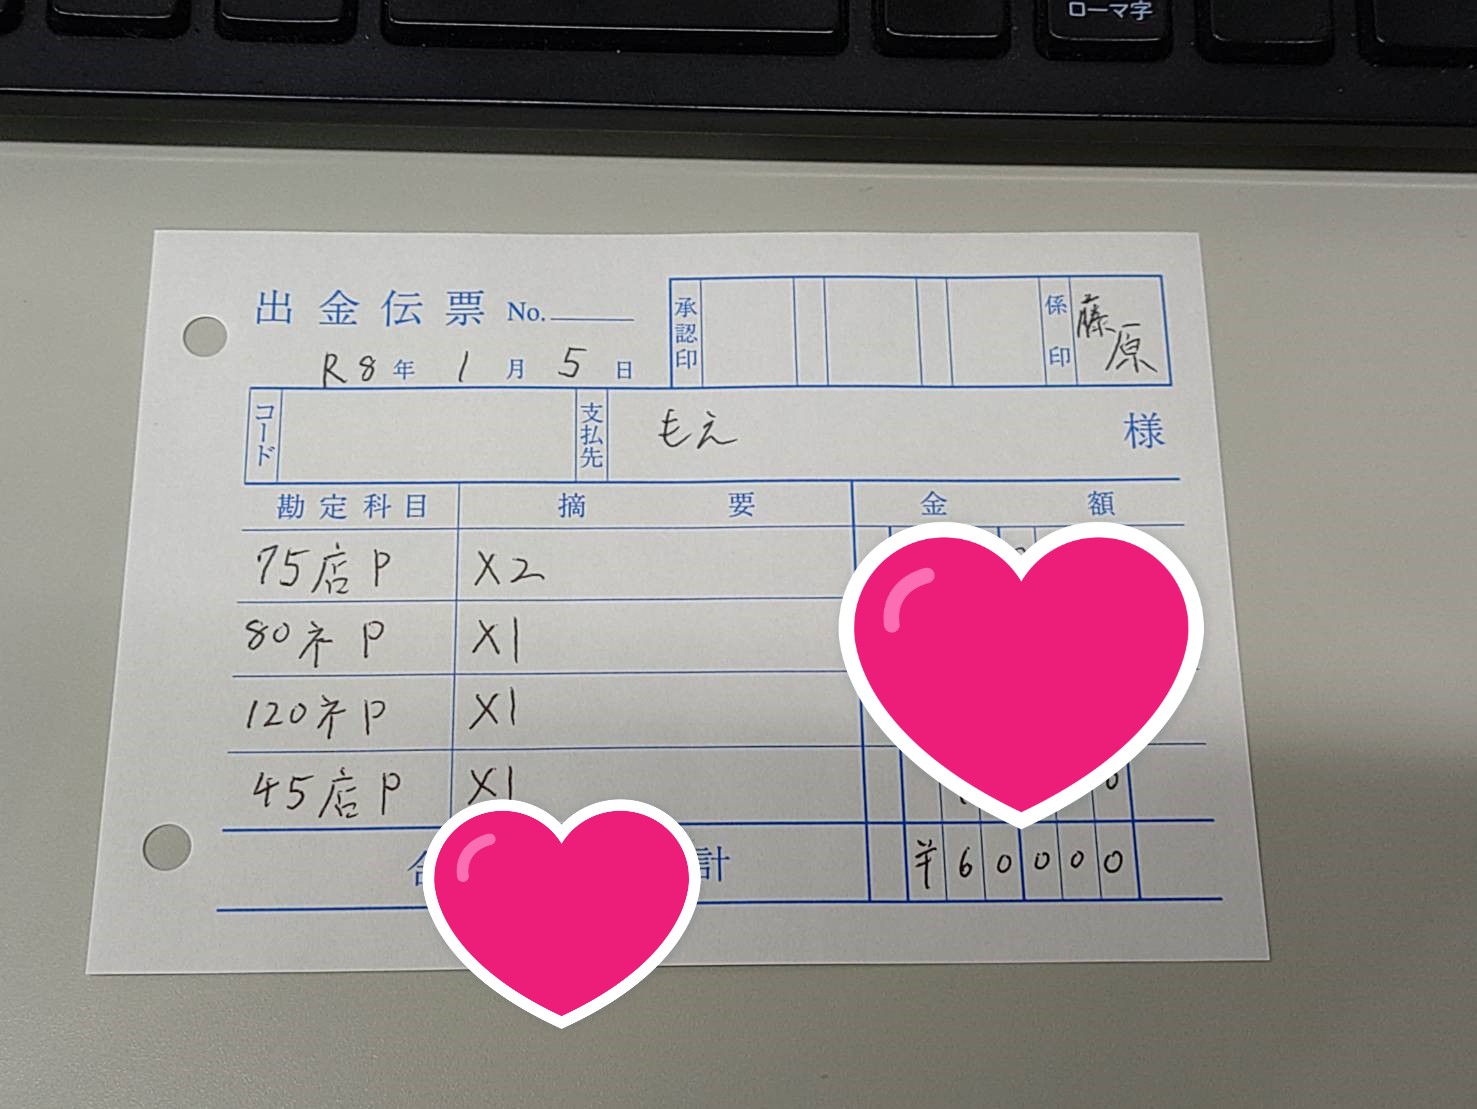 ローマ字
出金伝票 No.
承認印
係印 藤原
R8年 1月 5日
コード
支払先 もえ 様
勘定科目 摘要 金額
75店P X2
80ネP X1
120ネP X1
45店P X1
計 ¥60000